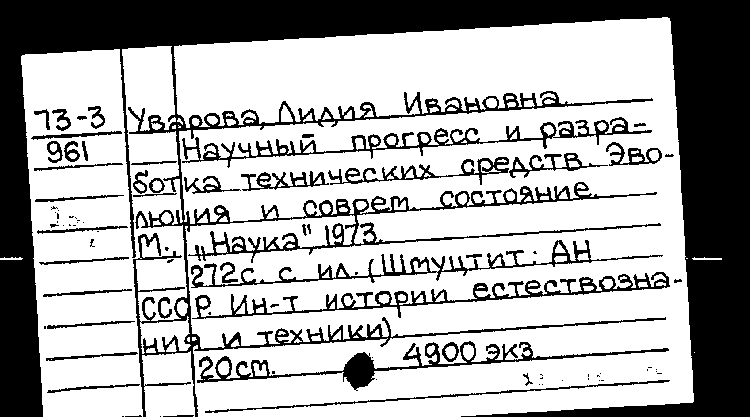 73-3 Уварова, Лидия Ивановна.
961 Научный прогресс и разра-
ботка технических средств. Эво-
люция и соврем. состояние.
М., „Наука", 1973.
272с. с ил. (Шмуцтит: АН
СССР. Ин-т истории естествозна-
ния и техники).
20 cm. 4900 экз.